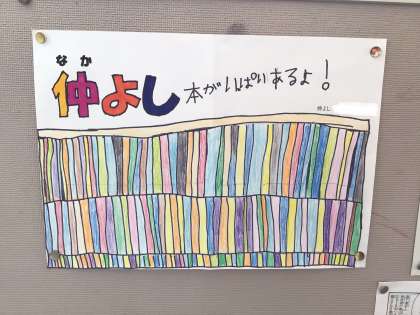 なか
仲よし 本がいっぱいあるよ!
仲よし